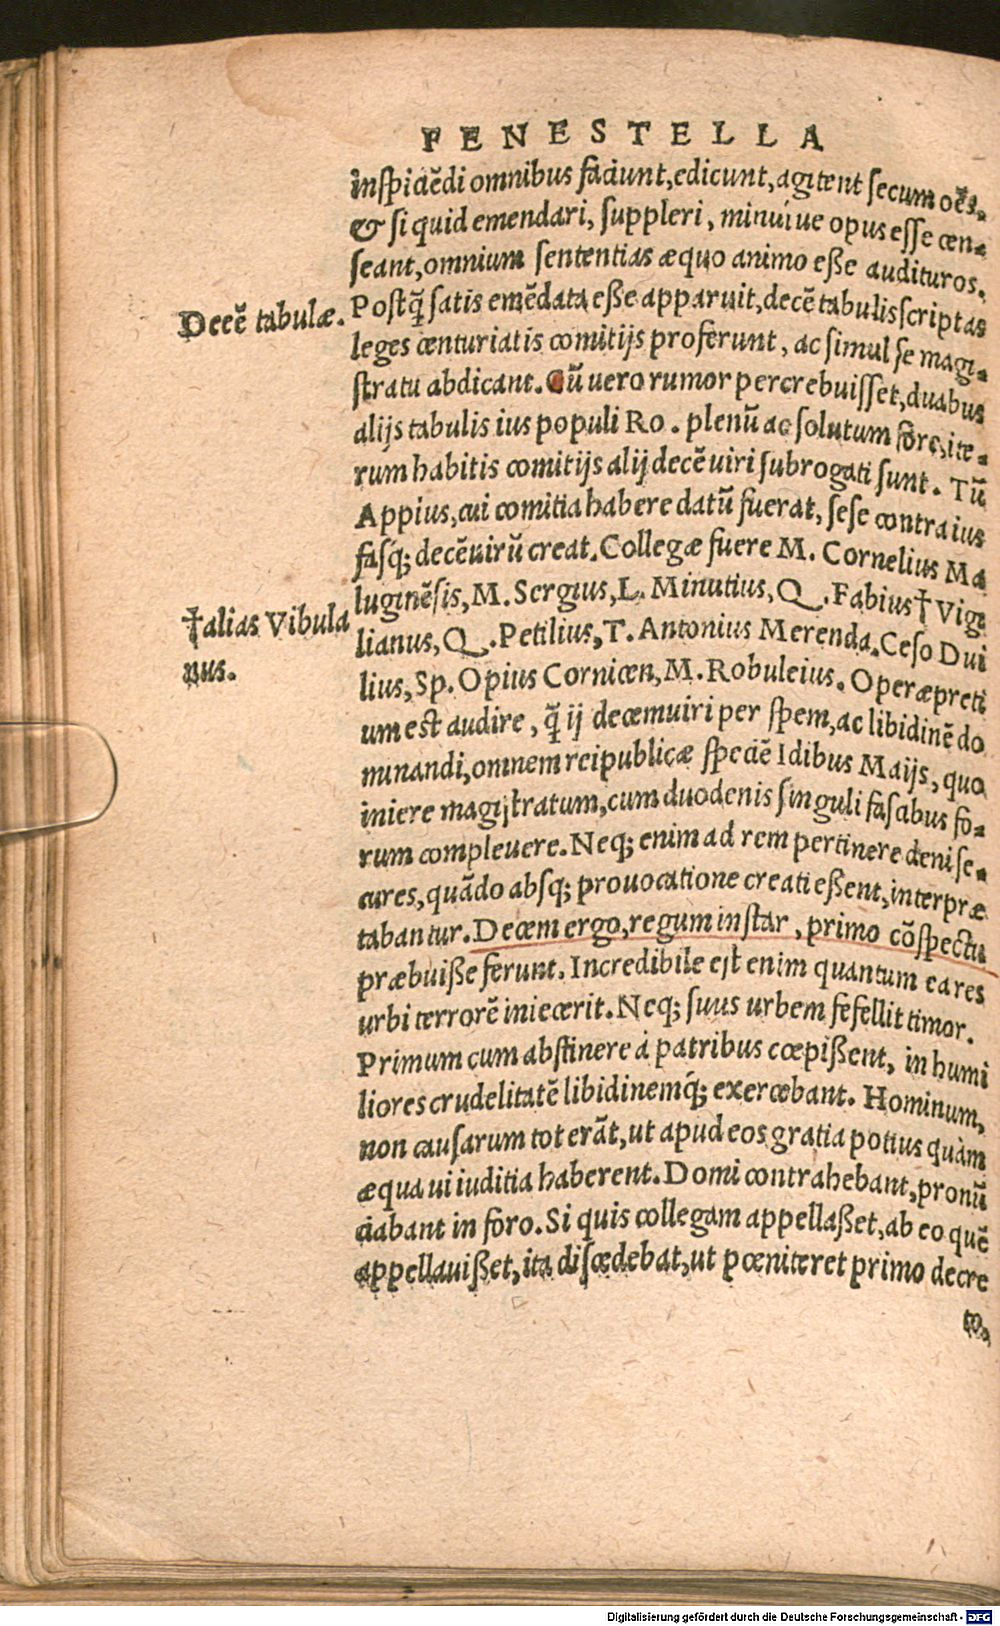 FENESTELLA
inspiciẽdi omnibus faciunt, edicunt, agitent secum oẽs,
& si quid emendari, suppleri, minui ue opus esse cen-
seant, omnium sententias æquo animo eße audituros.
Decẽ tabulæ.
Postq̃ satis emẽdata eße apparuit, decẽ tabulis scriptas
leges centuriatis comitijs proferunt, ac simul se magi-
stratu abdicant. Cũ uero rumor percrebuisset, duabus
alijs tabulis ius populi Ro. plenũ ac solutum fore, ite-
rum habitis comitijs alij decẽ uiri subrogati sunt. Tũ
Appius, cui comitia habere datũ fuerat, sese contra ius
fasq; decẽuirũ creat. Collegæ fuere M. Cornelius Ma
luginẽsis, M. Sergius, L. Minutius, Q. Fabius † Vigi
†alias Vibula
nus.
lianus, Q. Petilius, T. Antonius Merenda. Ceso Dui
lius, Sp. Opius Cornicen, M. Robuleius. Operæpreti
um est audire, q̃ ij decemuiri per spem, ac libidinẽ do
minandi, omnem reipublicæ speciẽ Idibus Maijs, quo
iniere magistratum, cum duodenis singuli fascibus fo-
rum compleuere. Neq; enim ad rem pertinere deni se-
cures, quãdo absq; prouocatione creati eßent, interpræ
tabantur. Decem ergo, regum instar, primo cõspectu
præbuiße ferunt. Incredibile est enim quantum ea res
urbi terrorẽ iniecerit. Neq; suus urbem fefellit timor.
Primum cum abstinere à patribus cœpißent, in humi
liores crudelitatẽ libidinemq́; exercebant. Hominum,
non causarum tot erãt, ut apud eos gratia potius quàm
æqua ui iuditia haberent. Domi contrahebant, pronũ
ciabant in foro. Si quis collegam appellaßet, ab eo quẽ
appellauißet, ita discedebat, ut pœniteret primo decre
to,
Digitalisierung gefördert durch die Deutsche Forschungsgemeinschaft - DFG